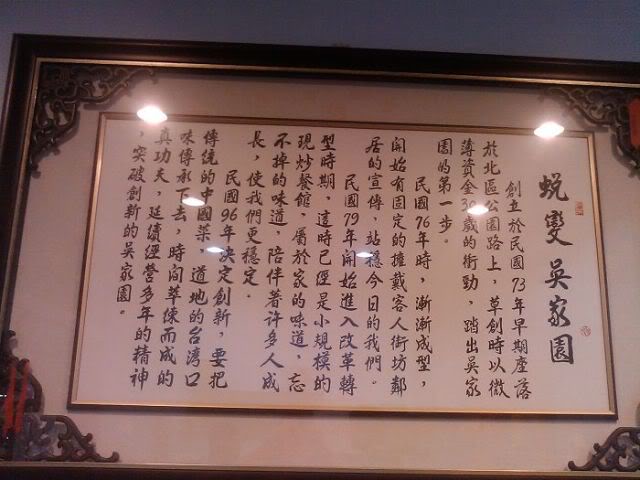 蛻變吳家園
創立於民國73年早期座落
於北區公園路上，草創時以微
薄資金30歲的衝勁，踏出吳家
園的第一步。
民國76年時，漸漸成型，
開始有固定的擁戴客人街坊鄰
居的宣傳，站穩今日的我們。
民國79年開始進入改革轉
型時期，這時已經是小規模的
現炒餐館，屬於家的味道，忘
不掉的味道，陪伴著許多人成
長，使我們更穩定。
民國96年決定創新，要把
傳統的中國菜，道地的台灣口
味傳承下去，時間萃煉而成的
真功夫，延續經營多年的精神
，突破創新的吳家園。